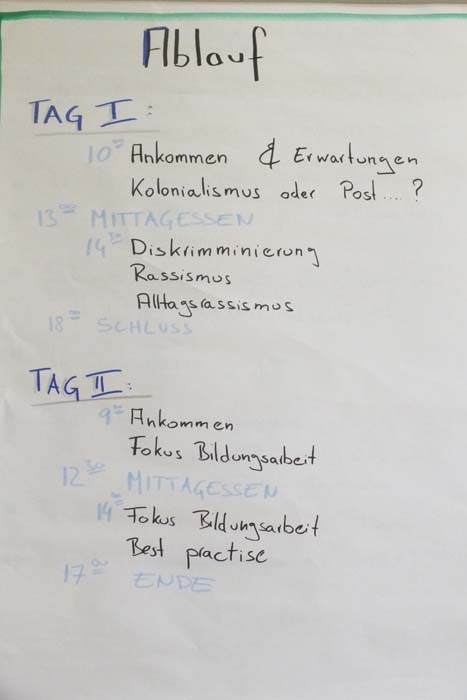 Ablauf
TAG I:
10⁰⁰ Ankommen & Erwartungen
Kolonialismus oder Post....?
13⁰⁰ MITTAGESSEN
14³⁰ Diskrimminierung
Rassismus
Alltagsrassismus
18⁰⁰ SCHLUSS
TAG II:
9⁰⁰ Ankommen
Fokus Bildungsarbeit
12³⁰ MITTAGESSEN
14⁰⁰ Fokus Bildungsarbeit
Best practise
17⁰⁰ ENDE